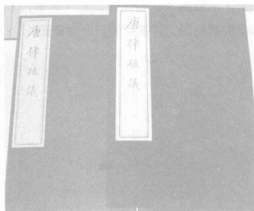 唐律疏議
唐律疏議